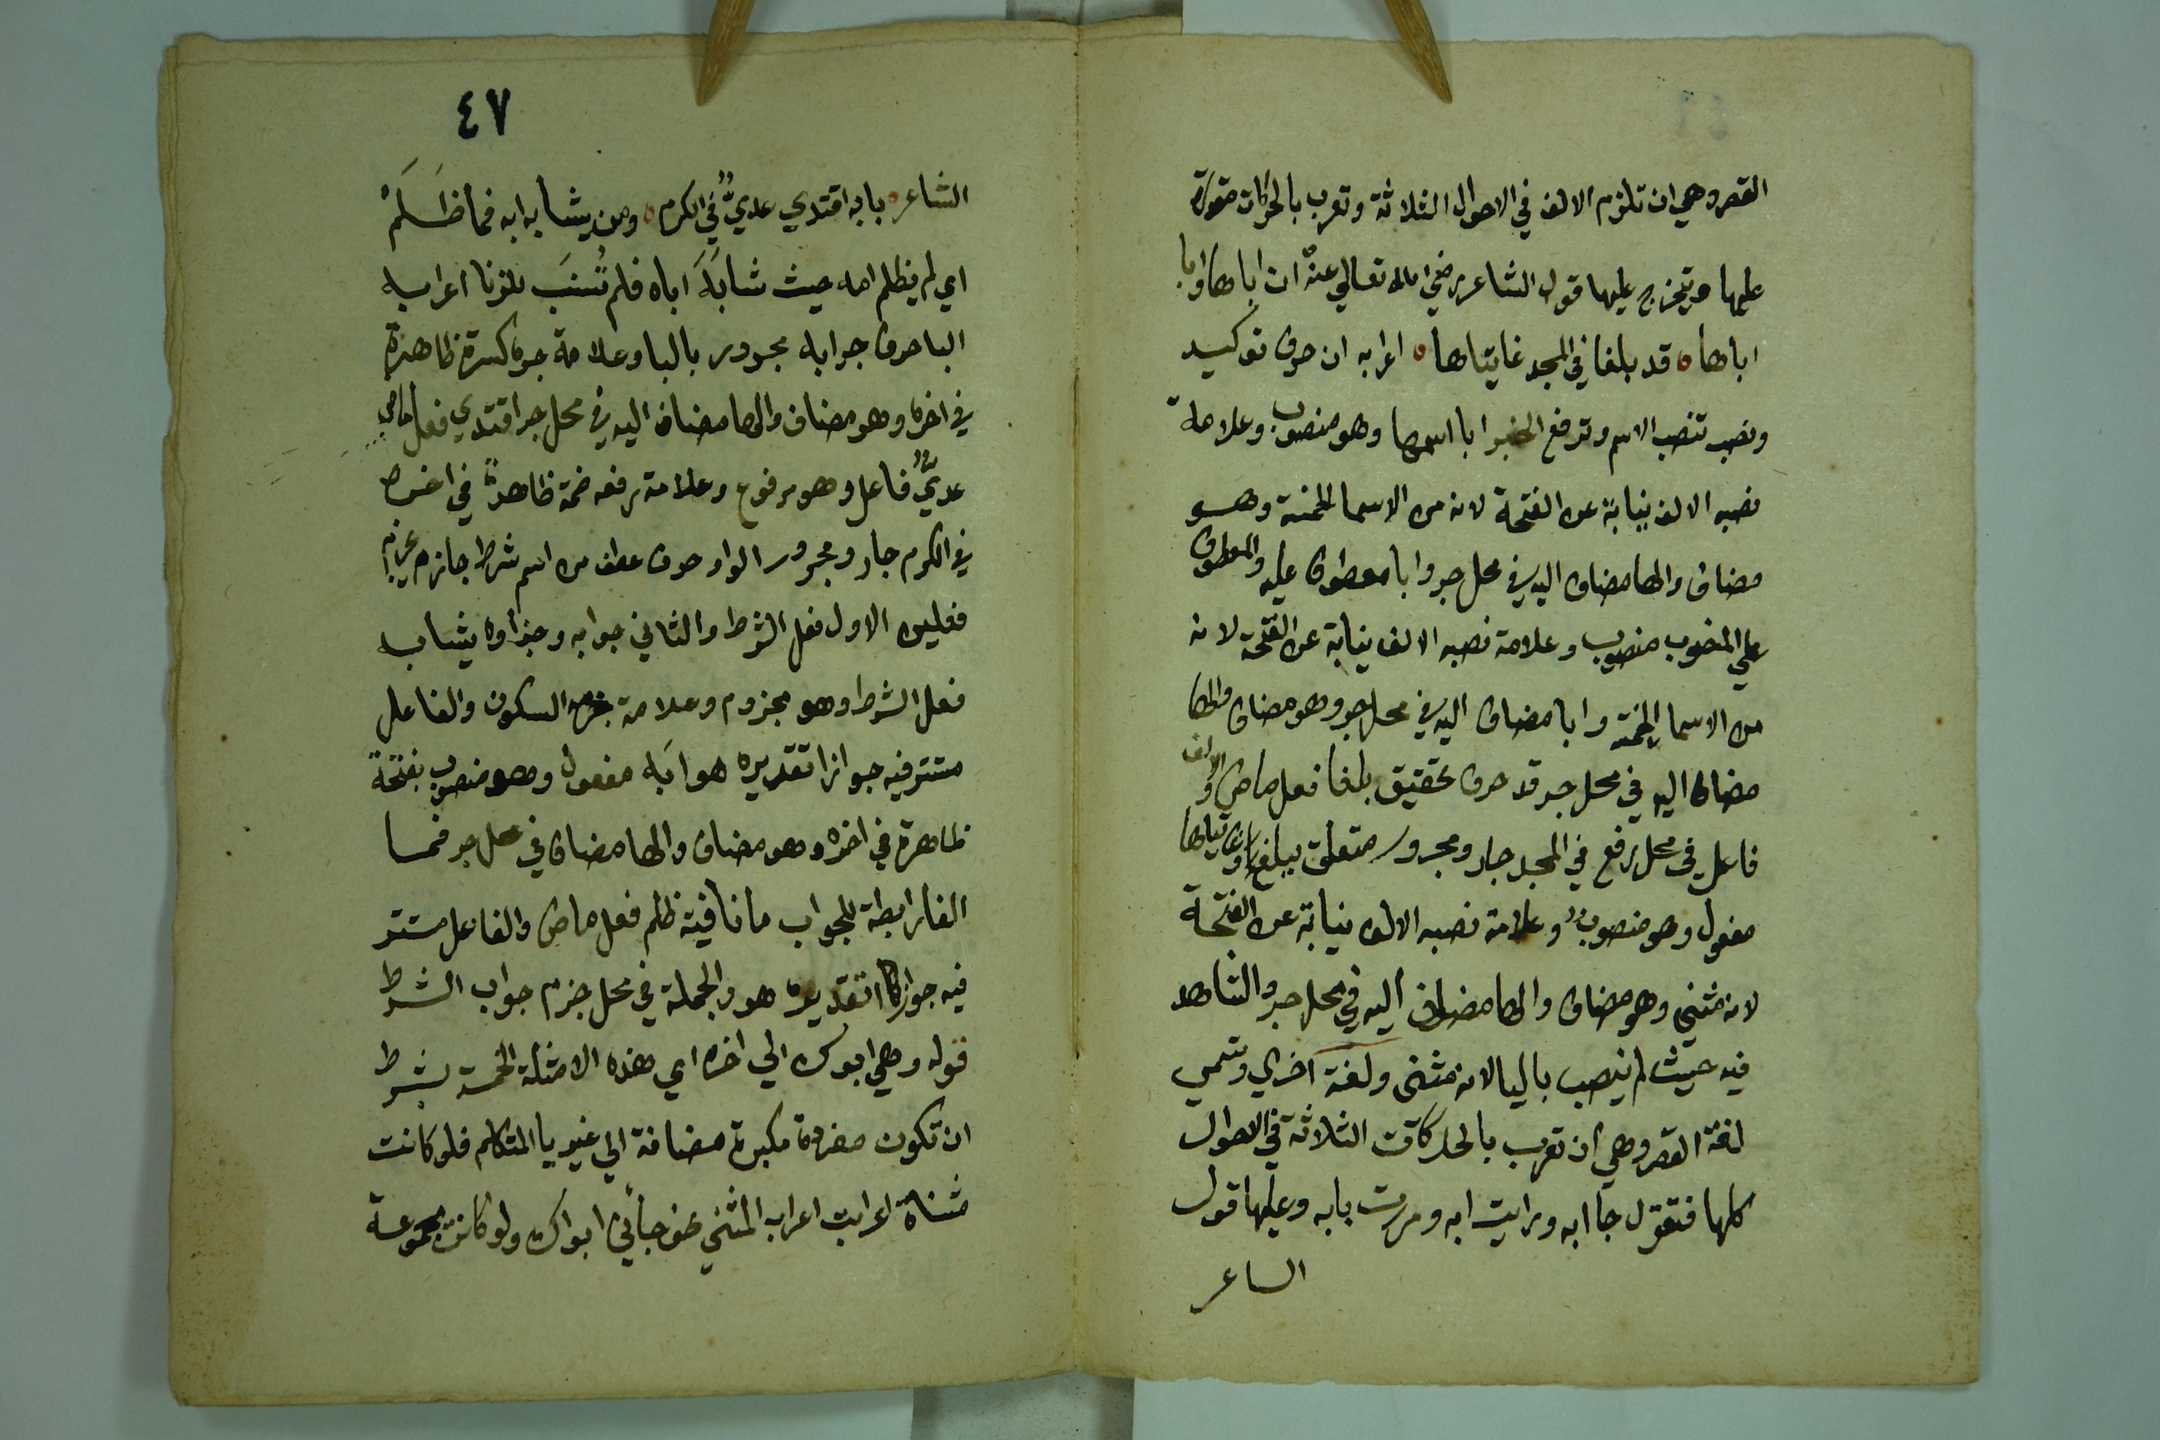 القصر وهي ان تلزم الالف في الاحوال الثلاثة وتعرب بالحركات مقدرة
عليها ويتخرج عليها قول الشاعر رضي الله تعالي عنه ان اباها وابا
اباها ه قد بلغا في المجد غايتاها ه اعرابه ان حرف توكيد
ونصب تنصب الاسم وترفع الخبر ابا اسمها وهو منصوب وعلامة
نصبه الالف نيابة عن الفتحة لانه من الاسما الخمسة وهو
مضاف والها مضاف اليه في محل جر وابا معطوف عليه والمعطوف
علي المنصوب منصوب وعلامة نصبه الالف نيابة عن الفتحة لانه
من الاسما الخمسة وابا مضاف اليه في محل جر وهو مضاف والها
مضاف اليه في محل جر قد حرف تحقيق بلغا فعل ماض والالف
فاعل في محل رفع في المجد جار ومجرور متعلق ببلغ وغايتاها
مفعول وهو منصوب وعلامة نصبه الالف نيابة عن الفتحة
لانه مثني وهو مضاف والها مضاف اليه في محل جر والشاهد
فيه حيث لم ينصب باليا لانه مثني ولغة اخري وتسمي
لغة القصر وهي ان تعرب بالحركات الثلاثة في الاحوال
كلها فتقول جا ابه ورايت ابه ومررت بابه وعليها قول
الساعر
٤٧
الشاعر ه بابه اقتدي عديٌّ في الكرم ه ومن يشابه ابه فما ظَلَمْ
اي لم يظلم امه حيث شابَهَ اباه فلم تُنسَب للزنا اعرابه
البا حرف جر ابه مجرور بالبا وعلامة جره كسرة ظاهرة
في اخره وهو مضاف والها مضاف اليه في محل جر اقتدي فعل ماض
عديٌّ فاعل وهو مرفوع وعلامة رفعه ضمة ظاهرةً في اخره
في الكرم جار ومجرور الواو حرف عطف من اسم شرط جازم يجزم
فعلين الاول فعل الشرط والثاني جوابه وجزاوه يشابه
فعل الشرط وهو مجزوم وعلامة جزمه السكون والفاعل
مستتر فيه جوازا تقديره هو ابَه مفعول وهو منصوب بفتحة
ظاهرة في اخره وهو مضاف والها مضاف في محل جر فما
الفا رابطة للجواب ما نافية ظلم فعل ماض والفاعل مستتر
فيه جوازا تقديره هو والجملة في محل جزم جواب الشرط
قوله وهي ابوك الي اخره اي هذه الامثلة الخمسة بشرط
ان تكون مفردة مكبرة مضافة الي غير يا المتكلم فلو كانت
مثناة اعربت اعراب المثني نحو جأني ابواك ولو كانت مجموعة